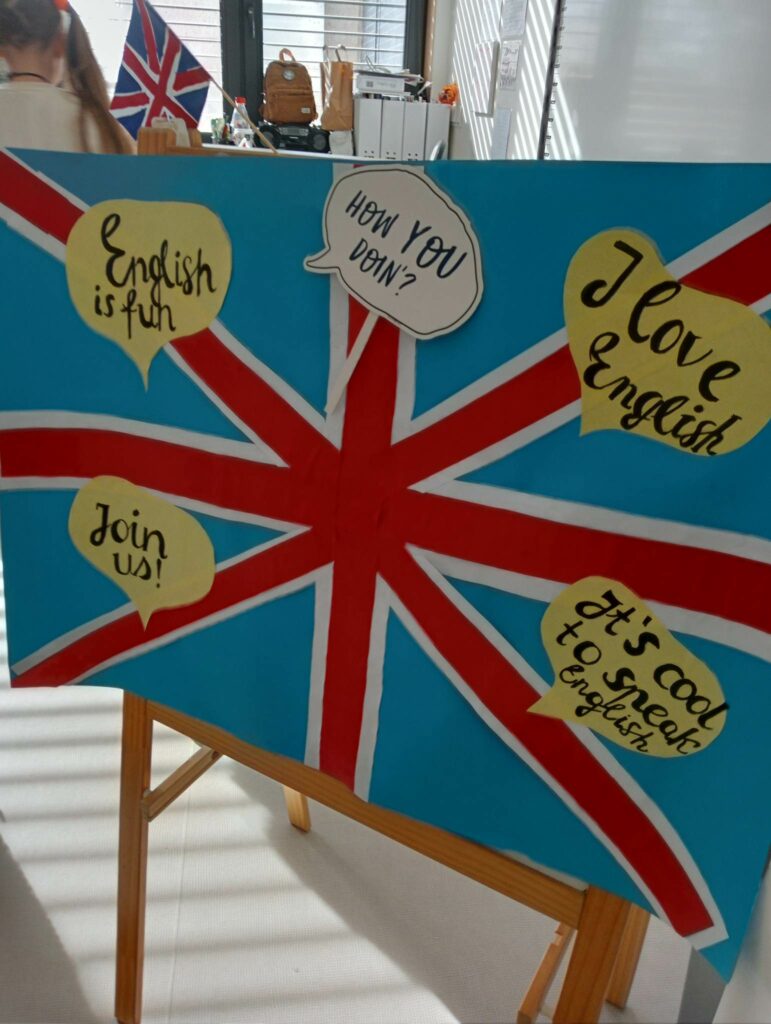 English
is fun
HOW YOU
DOIN'?
I love
English
Join
us!
It's cool
to speak
English